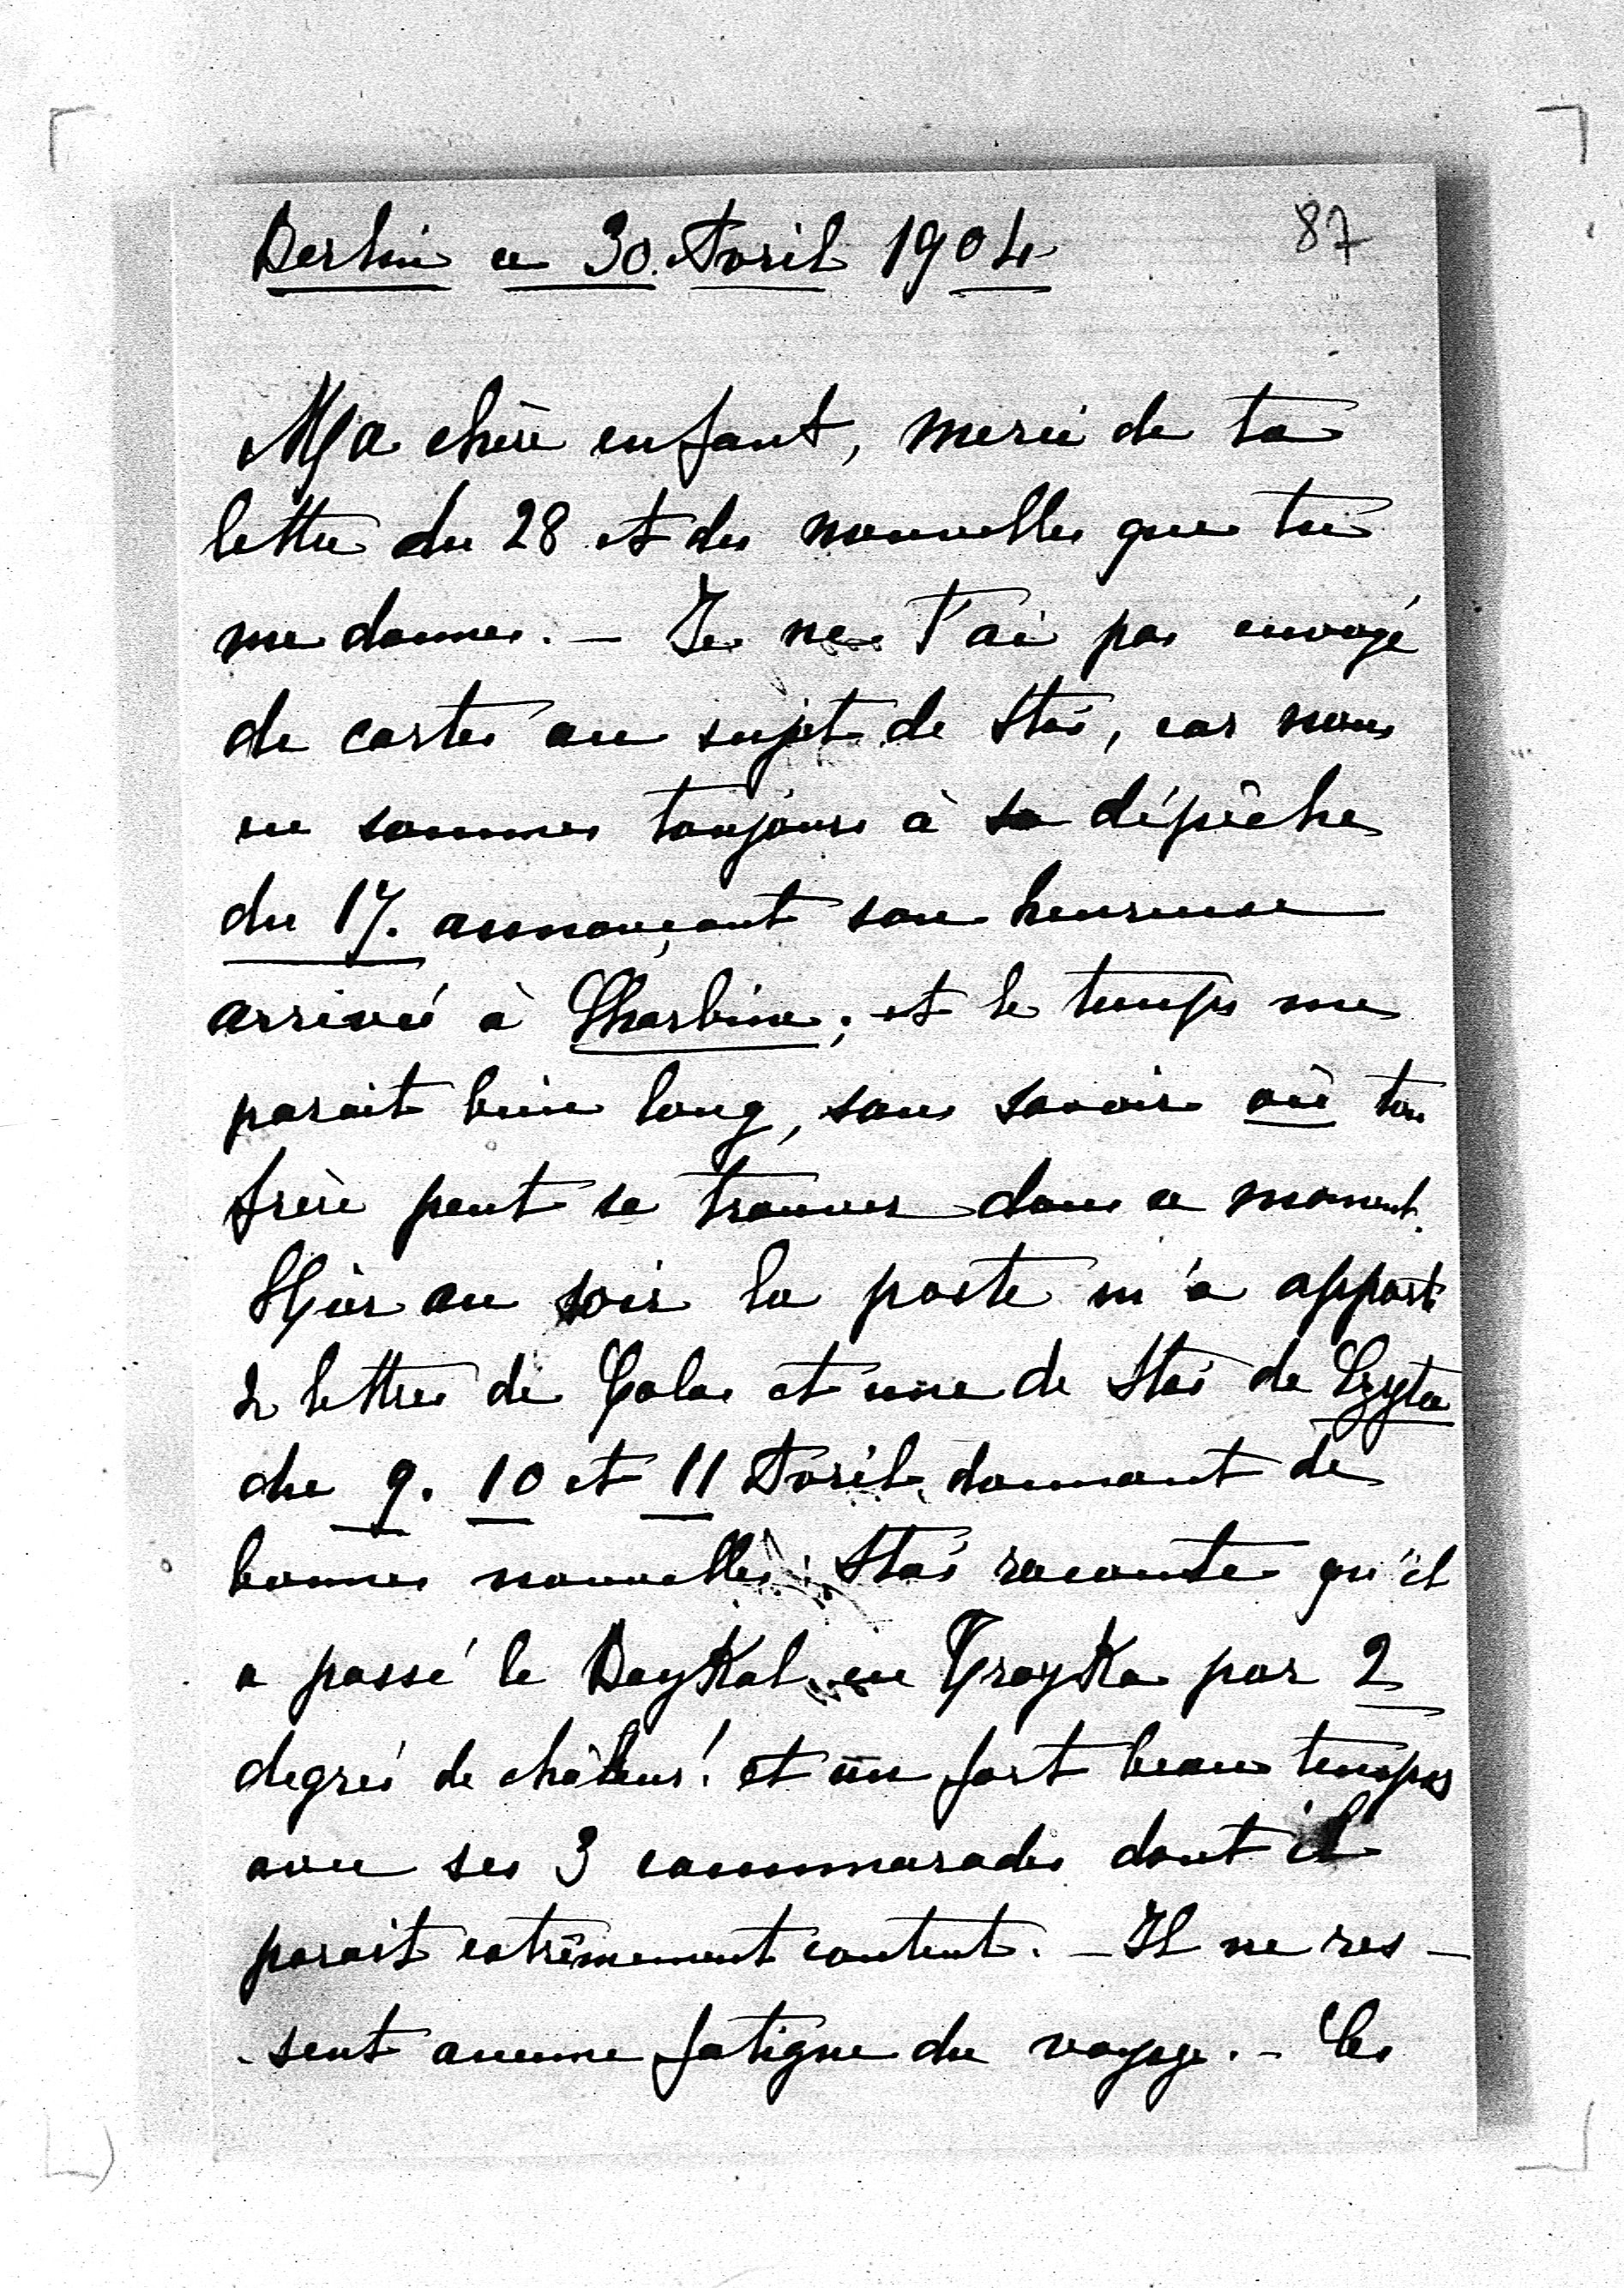 Berlin ce 30. Avril 1904
87
Ma chère enfant, merci de ta
lettre du 28 et des nouvelles que tu
me donnes. – Je ne t'ai pas envoyé
de cartes au sujet de Stas, car nous
en sommes toujours à sa dépêche
du 17. annonçant son heureuse
arrivée à Charbine; et le temps me
parait bien long, sans savoir où ton
frère peut se trouver dans ce moment.
Hier au soir la poste m'a apporté
2 lettres de et une de Stas de Czyta
du 9. 10 et 11 Avril, donnant de
bonnes nouvelles; Stas raconte qu'il
a passé le Baykal en Troyka par 2
degrés de châleur! et un fort beau temps
avec ses 3 cammarades dont il
parait extrêmement content. – Il ne res-
sent aucune fatigue du voyage. – Les